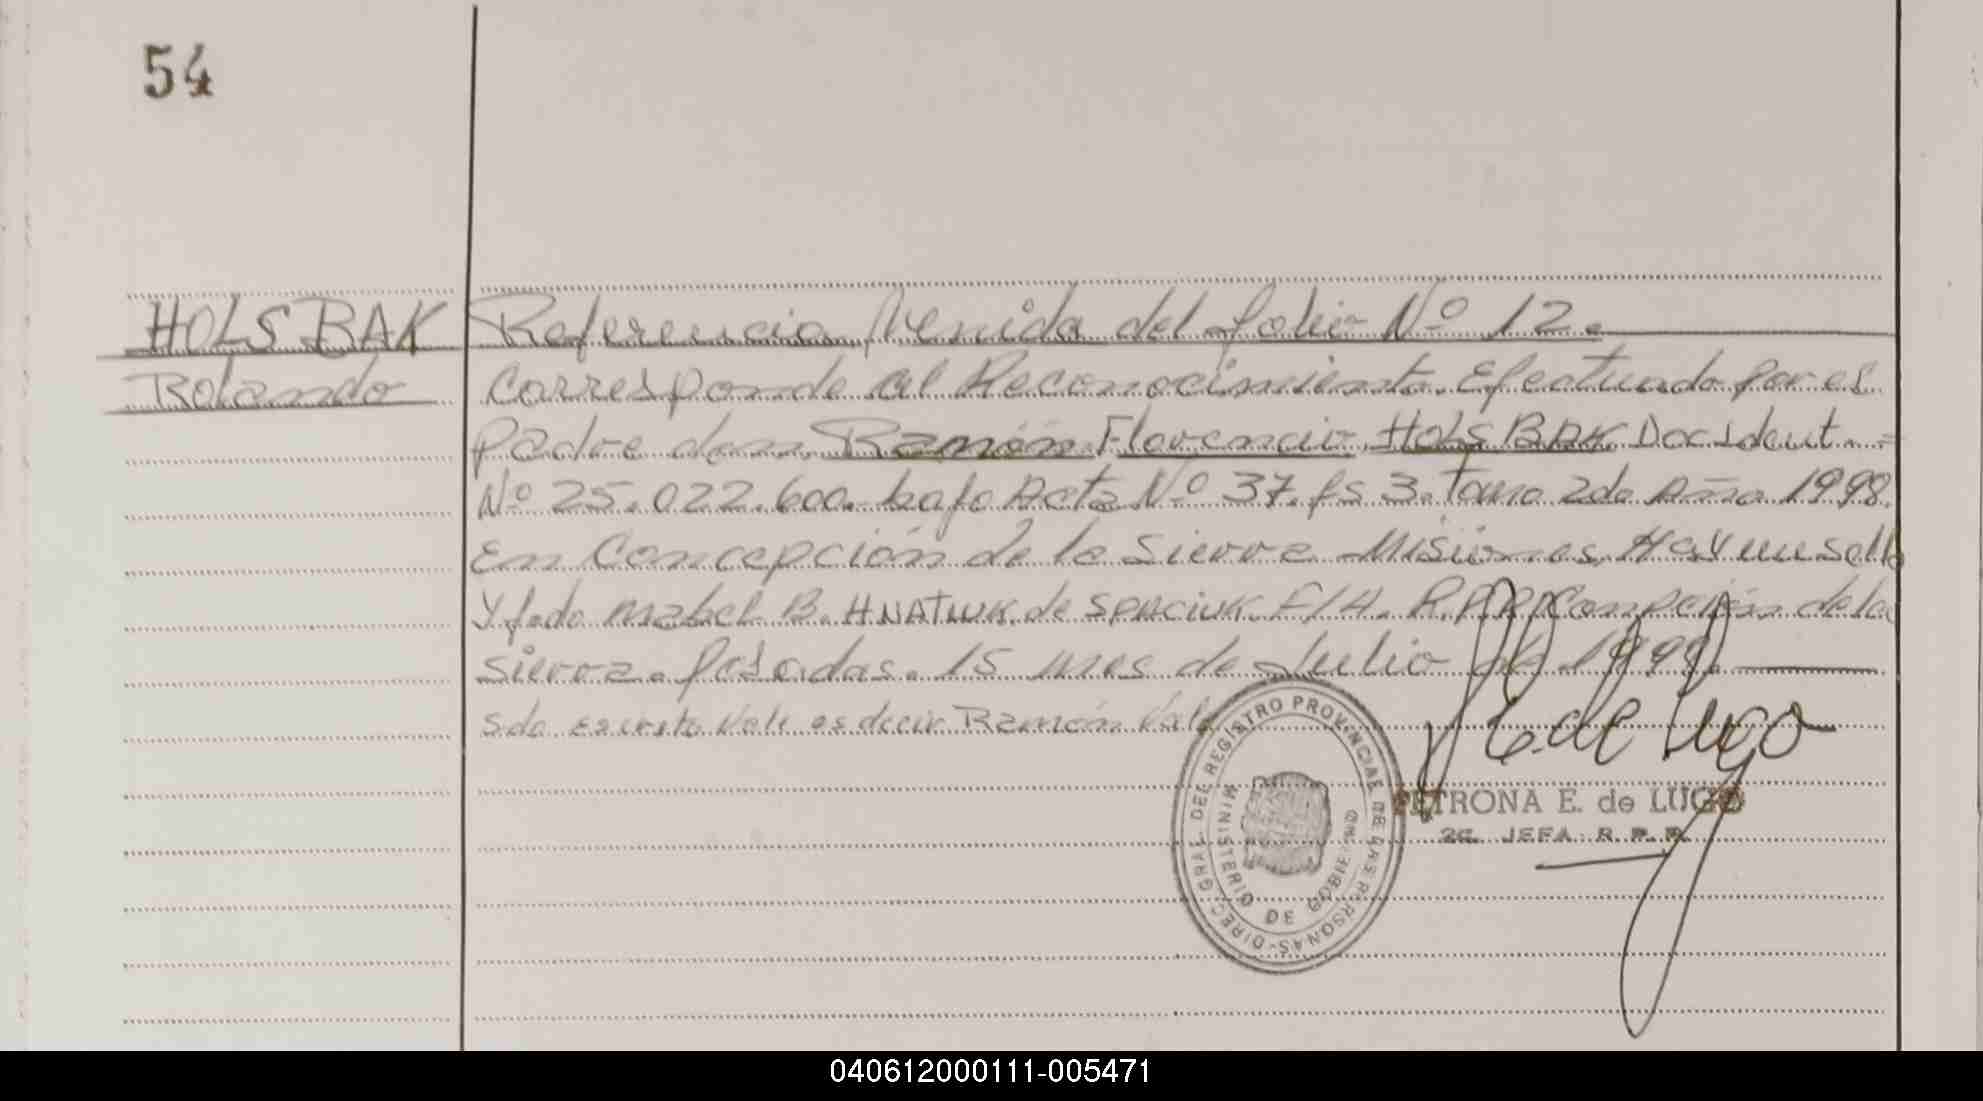 54
HOLSBAK
Rolando
Referencia Venida del folio Nº 12.
Corresponde al Reconocimiento Efectuado por el
Padre don Ramón Florencio HOLSBAK Doc Ident. =
Nº 25.022.600. bajo Acta Nº 37. fs 3. Tomo 2do Año 1998.
En Concepción de la Sierra Misiones. Hay un sello
y fdo Mabel B. HNATIUK de SPACIUK. E/H. R.P.P. Concepción de la
Sierra. Posadas. 15 mes de Julio de 1998.
Vale es decir Ramón Vale
DIREC. GRAL. DEL REGISTRO PROVINCIAL DE LAS PERSONAS-
MINISTERIO DE GOBIERNO
E. de Lugo
PETRONA E. de LUGO
2a. JEFA R. P. P.
040612000111-005471